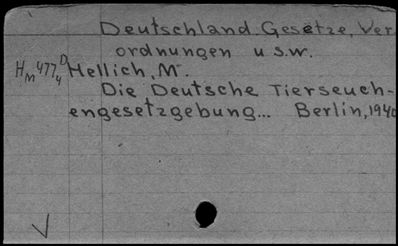 Deutschland. Gesetze, Ver-
ordnungen u.s.w.
HM 477 D4 Hellich, M.
Die Deutsche Tierseuch-
engesetzgebung... Berlin, 1940